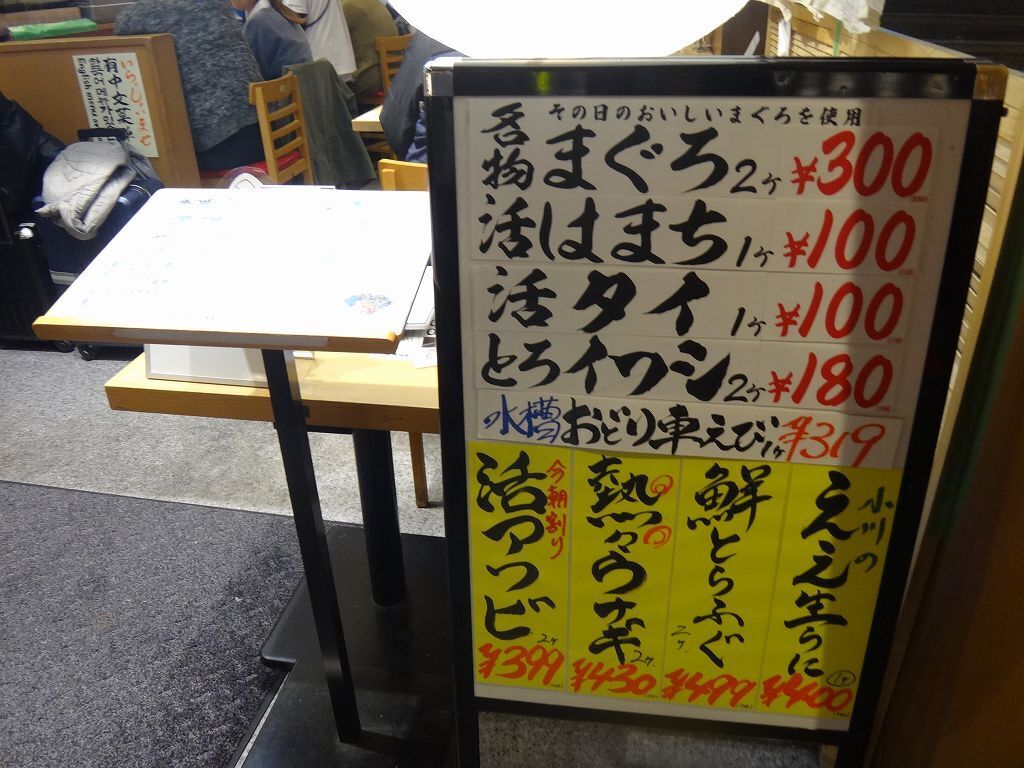 いらっしゃいませ
有中文菜單
English menu
その日のおいしいまぐろを使用
名物 まぐろ 2ヶ ¥300
活はまち 1ヶ ¥100
活タイ 1ヶ ¥100
とろイワシ 2ヶ ¥180
水槽 おどり車えび 1ヶ ¥319
小川の
ええ生うに
1ヶ
¥400
鮮とらふぐ
2ヶ
¥499
熱々ウナギ
2ヶ
¥430
今朝割り
活アワビ
2ヶ
¥399